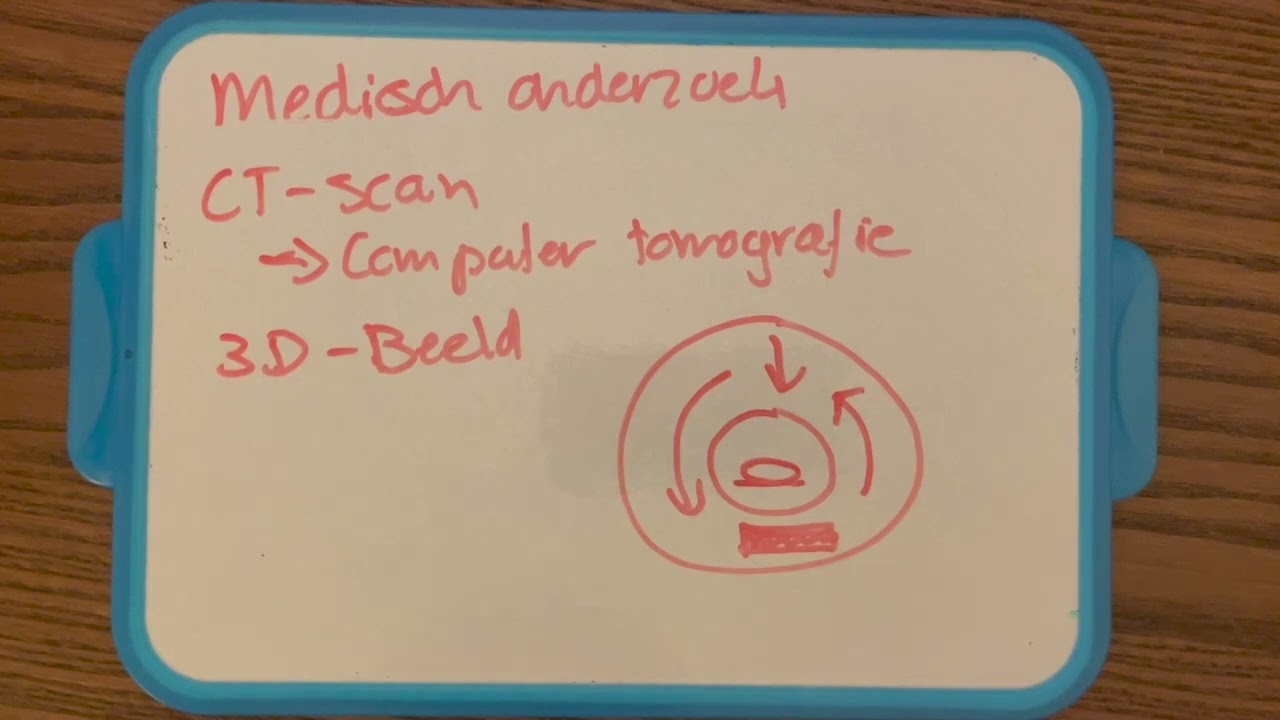 Medisch onderzoek
CT-scan
→ Computer tomografie
3D-Beeld